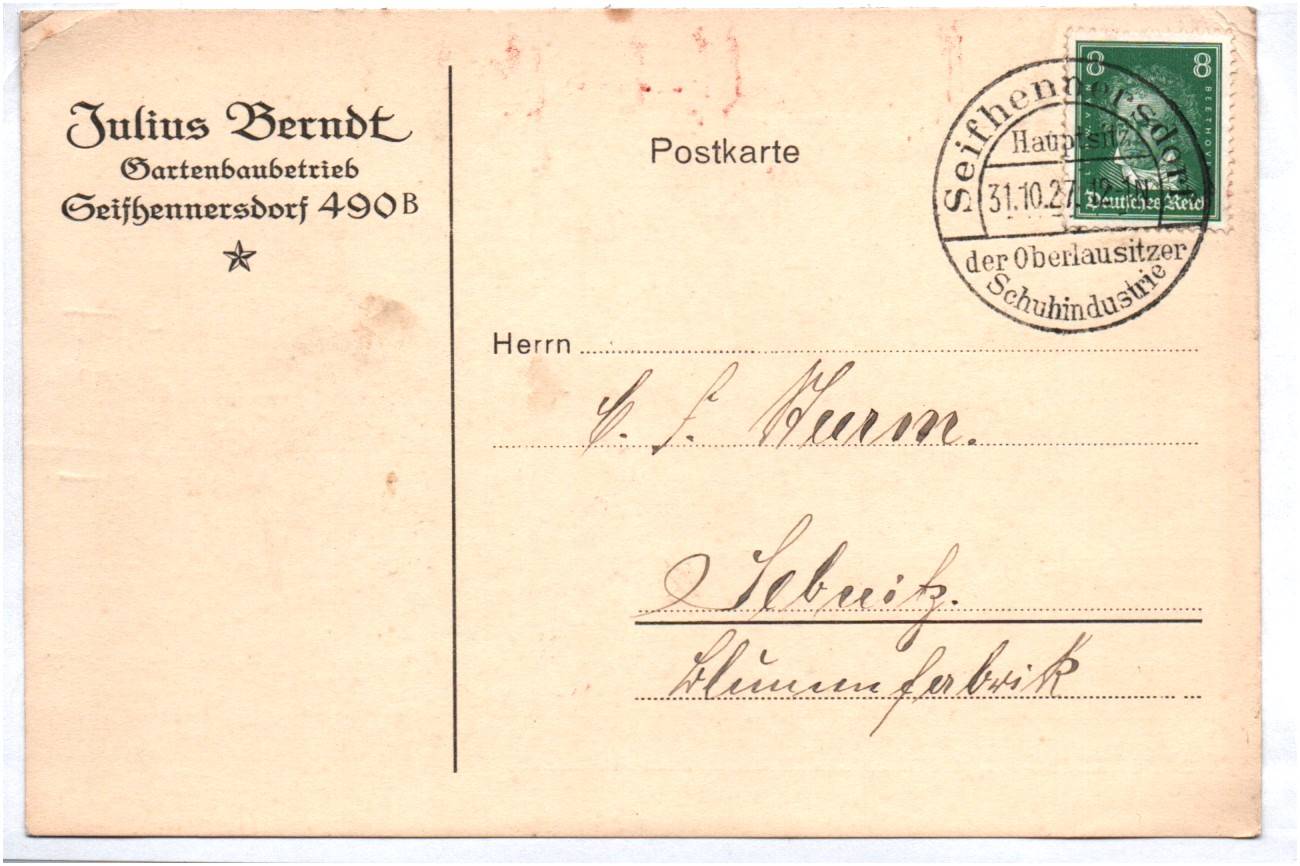 Julius Berndt
Gartenbaubetrieb
Seifhennersdorf 490B
Postkarte
8 8
BEETHOVEN
Deutsches Reich
Seifhennersdorf
Hauptsitz
31.10.27. 12-1N
der Oberlausitzer
Schuhindustrie
Herrn
C. F. Sturm.
Sebnitz.
Blumenfabrik